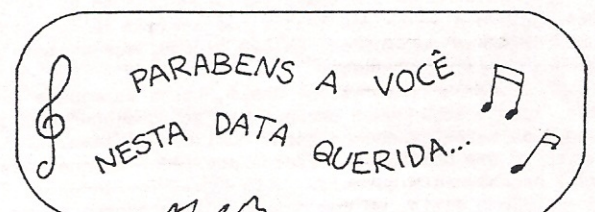 PARABENS A VOCÊ
NESTA DATA QUERIDA...